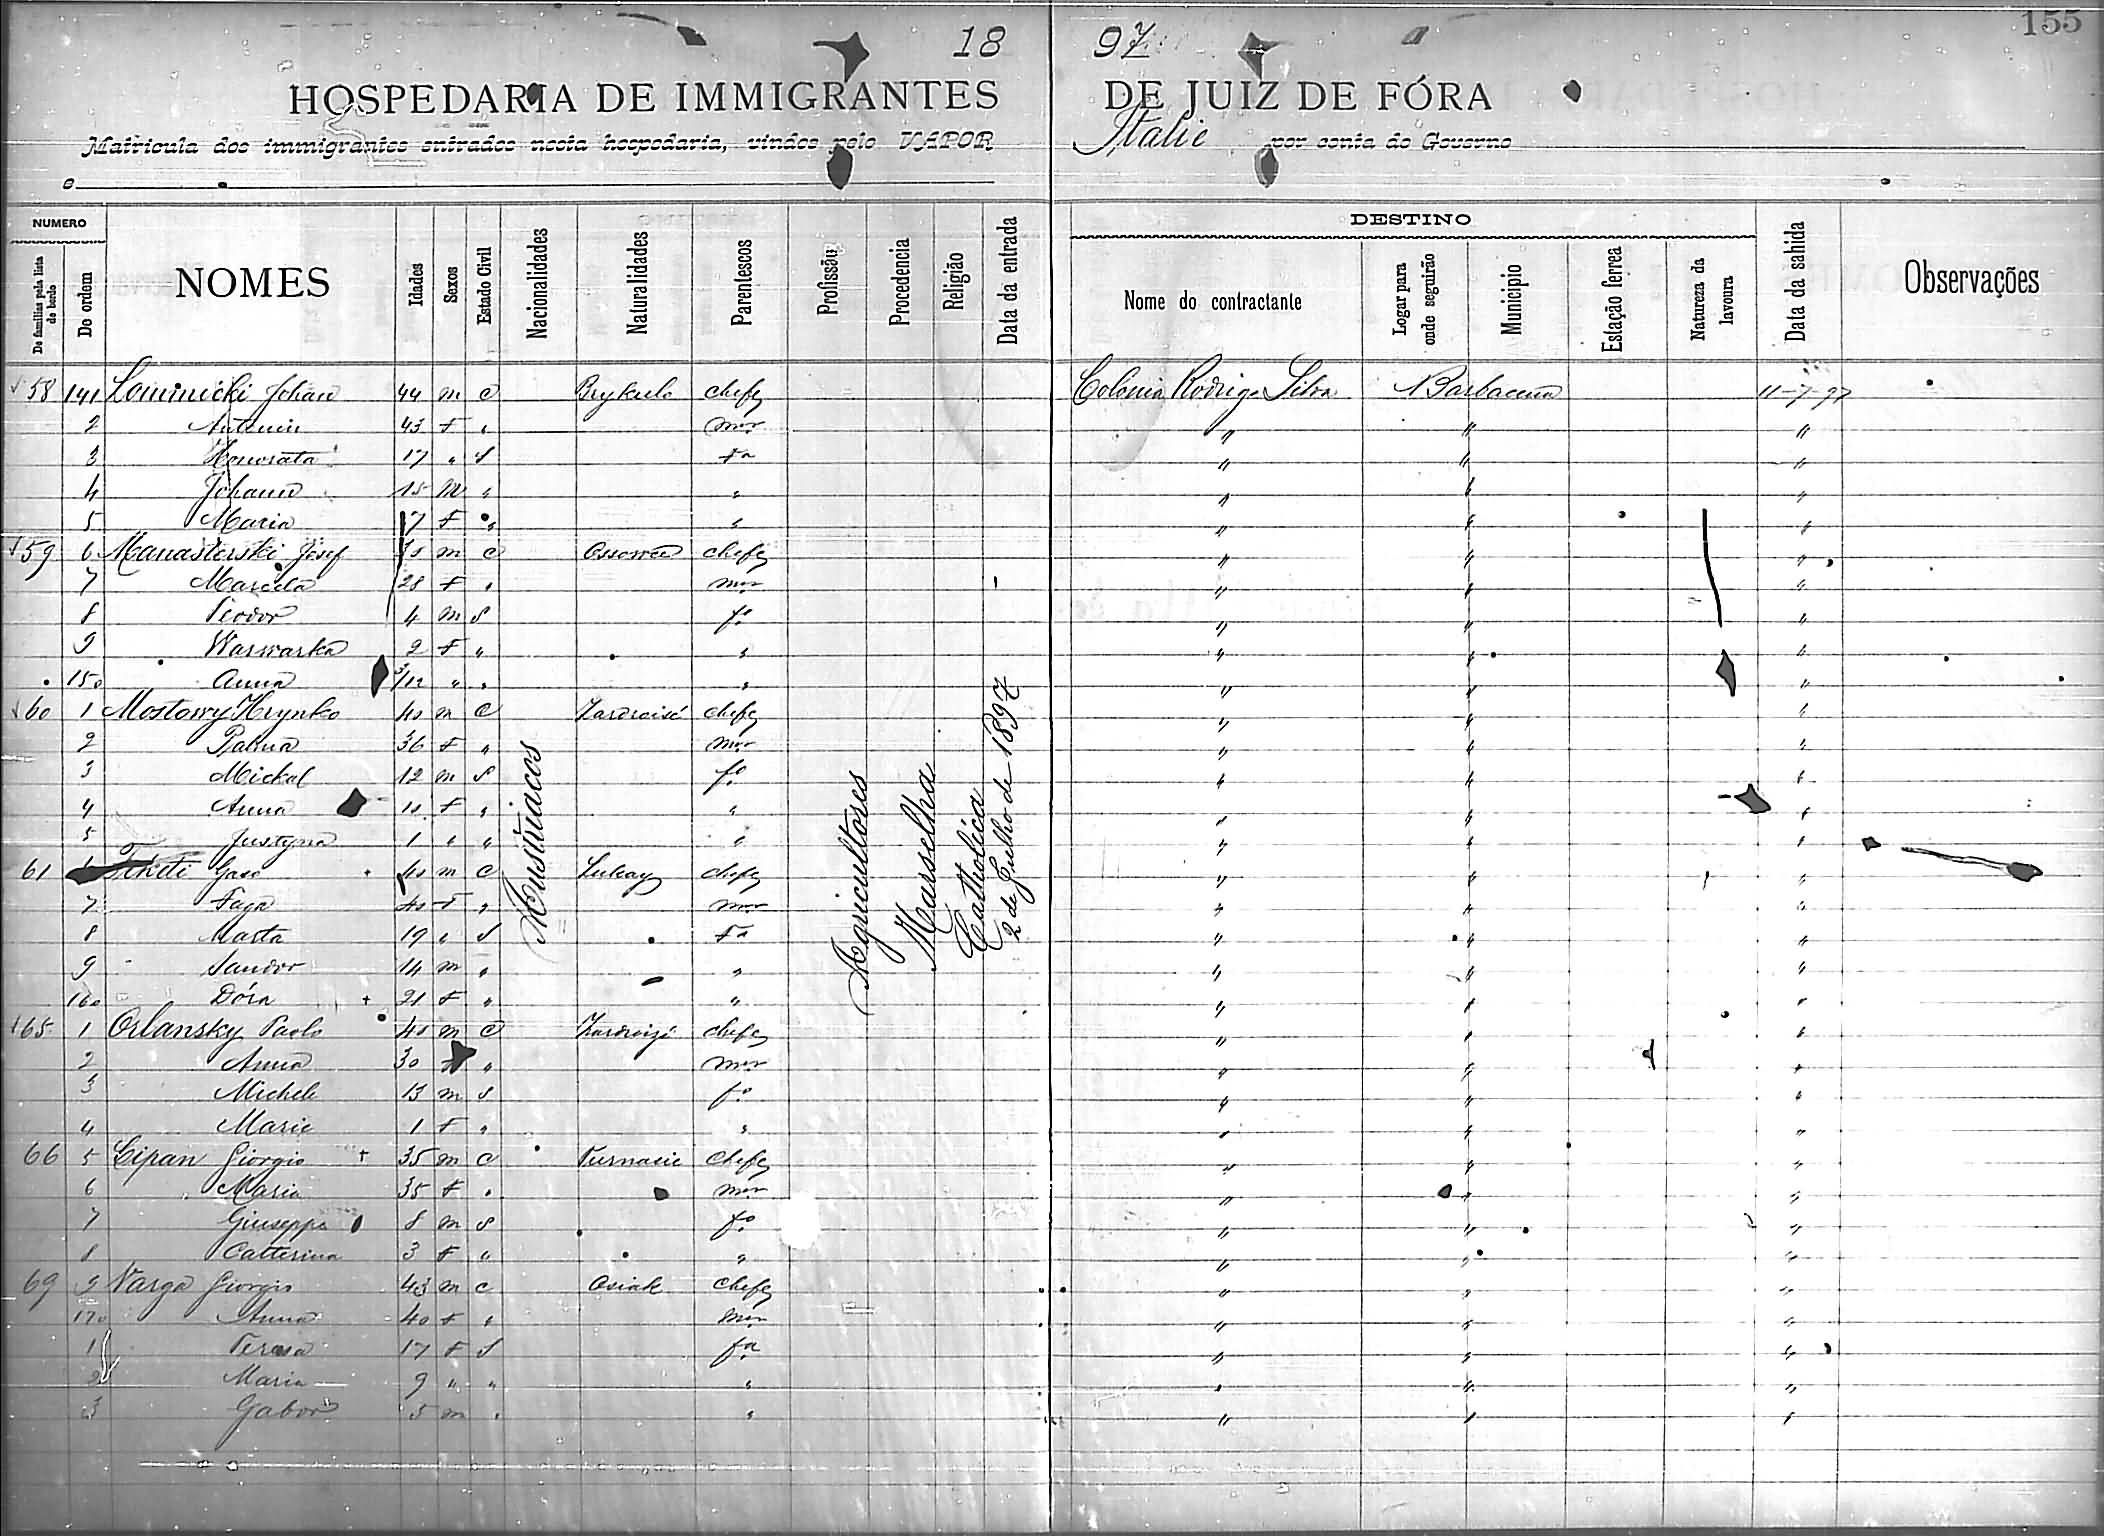 155
18 97
HOSPEDARIA DE IMMIGRANTES DE JUIZ DE FÓRA
Matricula dos immigrantes entrados nesta hospedaria, vindos pelo VAPOR Italie por conta do Governo
o
NUMERO
De familias pela lista de bordo
Do ordem
NOMES
Idades
Sexos
Estado Civil
Nacionalidades
Naturalidades
Parentescos
Profissão
Procedencia
Religião
Data da entrada
DESTINO
Nome do contractante
Logar para onde seguirão
Municipio
Estação ferrea
Natureza da lavoura
Data da sahida
Observações
58 141 Lominicki Johan 44 m c Brykula chefe Colonia Rodrigo Silva Barbacena 11-7-97
2 43 f " mer " " "
3 Honorata 17 " s fa " " "
4 Johann 15 m " " " " "
5 Maria 7 f " " " " "
59 6 Manasterski Josef m c chefe " " "
7 Marcela 28 f " mer " " "
8 Teodor 4 m s fo " " "
9 Warwarka 2 f " " " " "
150 Anna 3/12 " " " " " "
60 1 Mostowy Hrynko 40 m c chefe " " "
2 36 f " mer " " "
3 Mickal 12 m s fo " " "
4 Anna 10 f " " " " "
5 Justyna 1 " " " " " "
61 40 m c chefe " " "
7 40 f " mer " " "
8 Marta 19 " s fa " " "
9 Sandor 14 m " " " " "
160 Dóra + 21 f " " " " "
65 1 Orlansky Paolo 40 m c chefe " " "
2 Anna 30 " mer " " "
3 Michele 13 m s fo " " "
4 Marie 1 f " " " " "
66 5 Cipan Giorgio + 35 m c chefe " " "
6 Maria 35 f " mer " " "
7 Giuseppe 8 m s fo " " "
8 Catterina 3 f " " " " "
69 9 Varga Giorgio 43 m c Osiak chefe " " "
170 Anna 40 f " mer " " "
1 Teresa 17 f s fa " " "
2 Maria 9 " " " " " "
3 Gabor 5 m " " " " "
Austriacos
Agricultores
Marselha
Catholica
2 de Julho de 1897